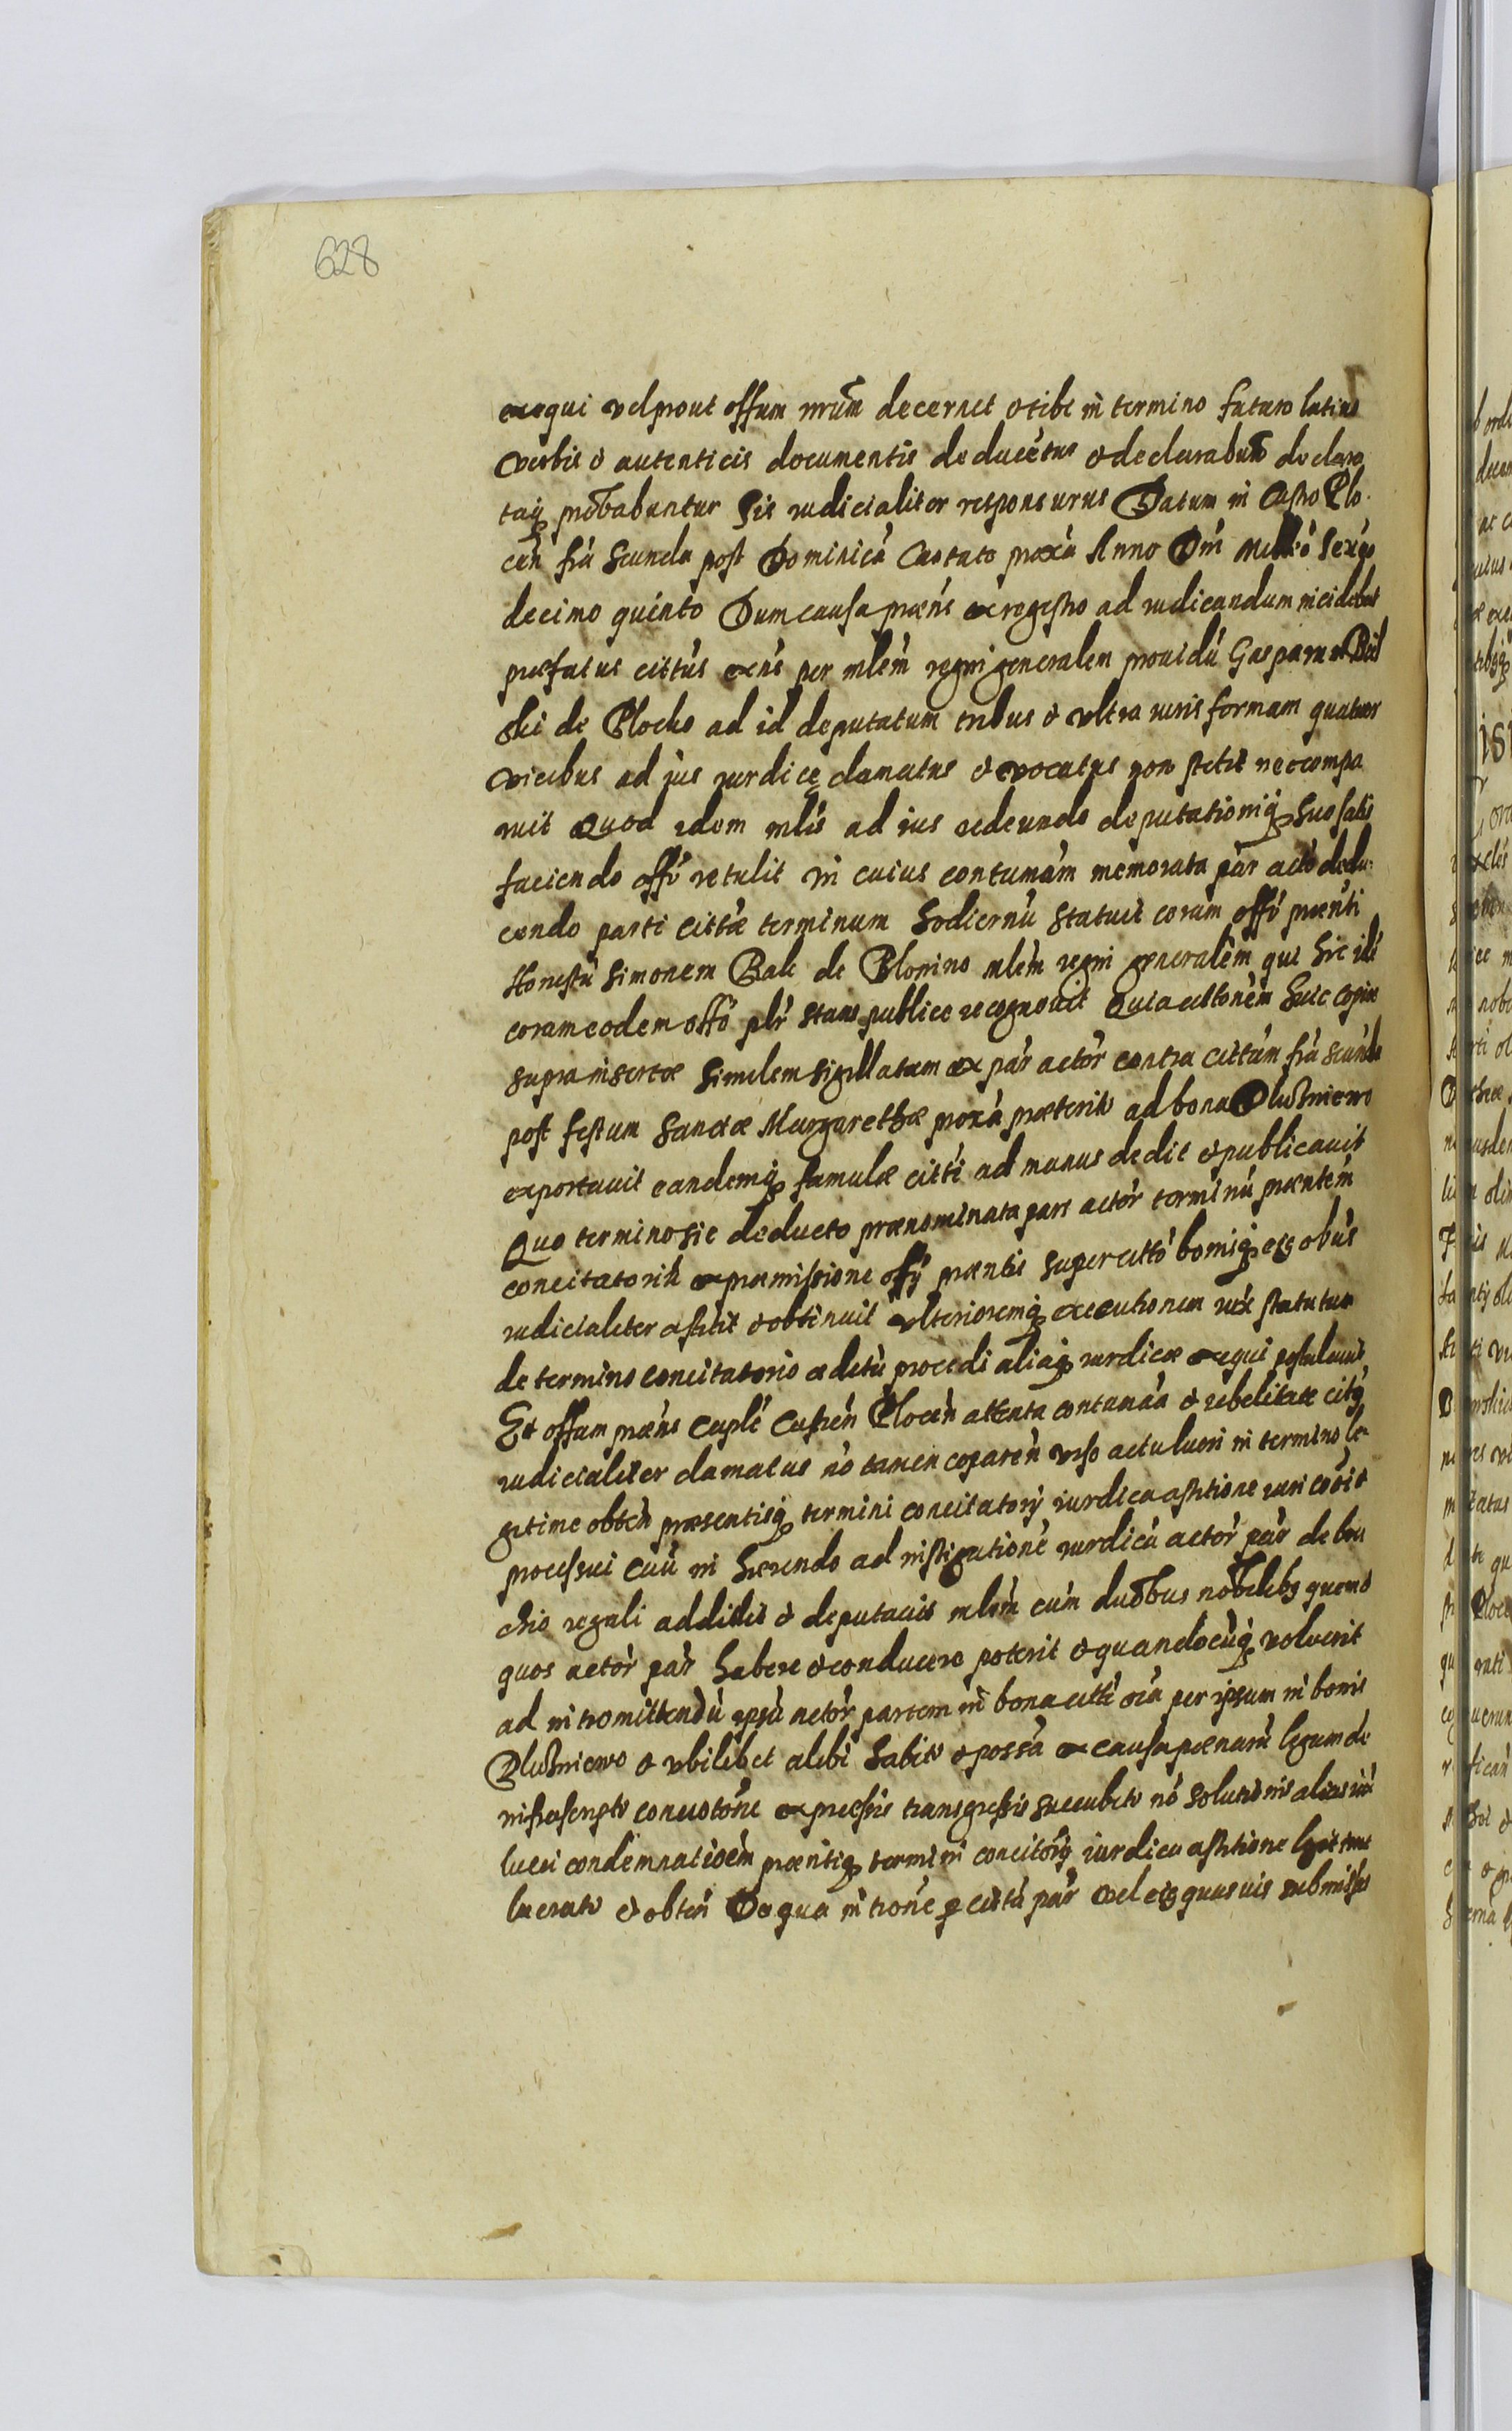 628
exequi vel prout offum nrum decernet et tibi in termino futuro latius
verbis et autenticis documentis deducetur et declarabuntur declara
taq probabuntur sis iudicialiter responsurus Datum in Castro Plo
cen fria secunda post Dominica Cantate proxa Anno Dni Millo sexgo
decimo quinto Dum causa præns ex registro ad iudicandum incidebat
præfatus cittus exns per mlem regni generalem prouidu Gasparum
ski de Plocko ad id deputatum tribus et vltra iuris formam quatuor
vicibus ad jus iurdice clamatus et vocatus non stetit nec compa
ruit Quod idem mlis ad ius redeundo deputationiq suæ satis
faciendo offo retulit in cuius contumam memorata par acto dedu
cendo parti cittæ terminum hodiernu statuit coram offo prænti
Honestu Simonem Bak de Blonino mlem regni generalem qui hic ibi
coram eodem offo plr stans publice recognouit Quia cittonem huic copiæ
supra insertæ similem sigillatam ex par actor contra cittum fria scunda
post festum Sanctæ Margarethæ proxa præterito ad bona Dlustniewo
exportauit eandemq famulæ citti ad manus dedit et publicauit
Quo termino sic deducto prænominata pars actor terminu præntem
concitatoriu ex præmissione offij præntis super citto bonisq eig obus
iudicialiter astitit et obtinuit vlterioremq executionem iuxe statutum
de termino concitatorio editu procedi aliaq iurdicæ exequi postulauit
Et offum præns Caple Castren Plocen attenta contumaa et rebelitate citq
iudicialiter clamatus no tamen coparen vrso actu lucri in termino le
gitime obten præsentisq termini concitatorij iurdica astitione iuri coöit
processui cuu in hærendo ad instigatione iurdica actor par de bra
chio regali addidit et deputauit mlem cum duobus nobilebq quem et
quos actor par habere et conducere poterit et quandocuq voluerit
ad intromittendu ipsu actor partem in bona citti oia per ipsum in bonis
Dlustniewo et vbilibet alibi habita et possa ex causa pænaru legum de
infrascripto concitone expressis transgressis succubito no solutionis alias iux
lucri condemnationem præntisq termini concitorij iurdica astitione
lucrato et obten De qua introne p cittu par vel eiq quasuis submissas